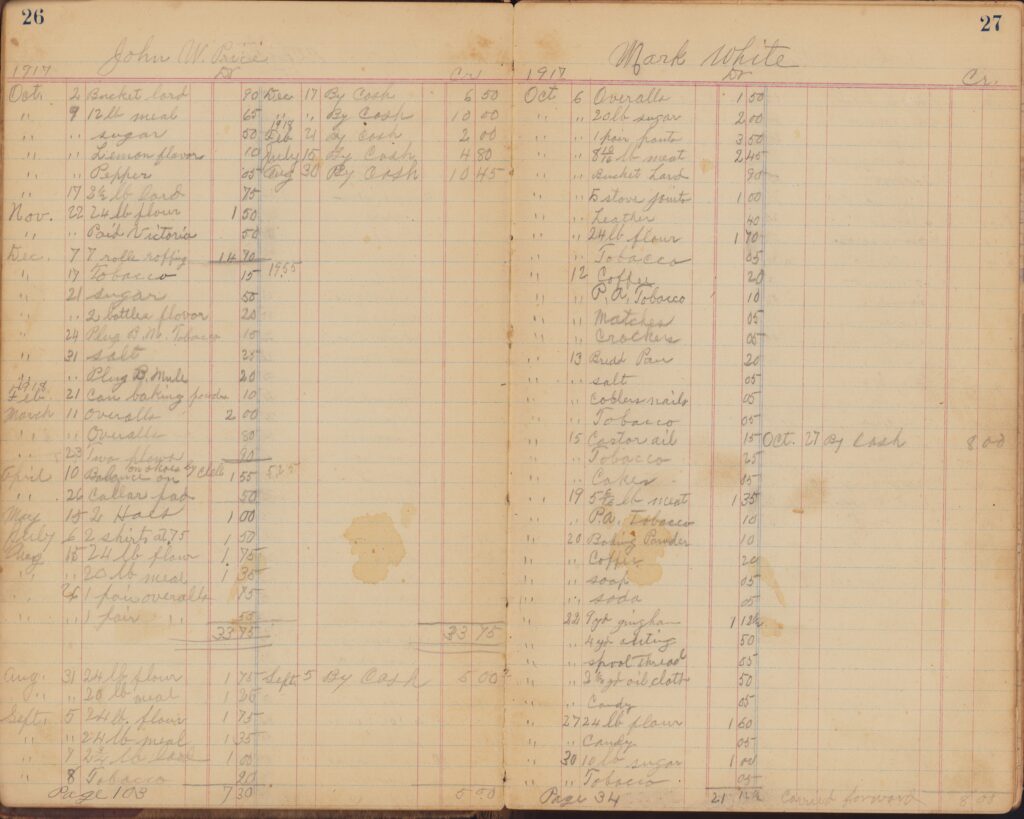 26
John W. Price
1917 Dr Cr.
Oct. 2 Bucket lard 90 Dec 17 By Cash 6 50
" 9 12 lb meal 65 " " By Cash 10 00
1918
" " sugar 50 Feb 21 By Cash 2 00
" " Lemon flavor 10 July 15 By Cash 4 80
" " Pepper 05 Aug 30 By Cash 10 45
" 17 3½ lb lard 75
Nov. 22 24 lb flour 1 50
" " Paid Victoria 50
Dec. 7 7 rolls roffing 14 70
" 17 Tobacco 15 1955
" 21 sugar 50
" " 2 bottles flavor 20
" 24 Plug B. M. Tobacco 15
" 31 salt 25
" " Plug B. Mule 20
1918
Feb. 21 Can baking powder 10
March 11 Overalls 2 00
" " Overalls 80
" 23 Two plows 90
April 10 Balance on shoes by Clell 1 55 525
" 26 Collar pad 50
May 15 2 Hats 1 00
July 6 2 shirts at 75 1 50
Aug 15 24 lb flour 1 75
" " 20 lb meal 1 35
" 26 1 pair overalls 75
" " 1 pair " 50
33 75 33 75
Aug. 31 24 lb flour 1 75 Sept 5 By Cash 5 00
" " 20 lb meal 1 25
Sept. 5 24 lb. flour 1 75
" " 24 lb meal 1 35
" 7 lb 1 00
" 8 Tobacco 20
Page 103 7 30 5 00
27
Mark White
1917 Dr Cr.
Oct 6 Overalls 1 50
" " 20 lb sugar 2 00
" " 1 pair pants 3 50
" " lb meat 2 45
" " Bucket Lard 90
" " 5 stove joints 1 00
" " Leather 40
" " 24 lb flour 1 70
" " Tobacco 05
" 12 Coffee 20
" " P. A. Tobacco 10
" " Matches 05
" " Crackers 05
" 13 Bread Pan 20
" " salt 05
" " Coblers nails 05
" " Tobacco 05
" 15 Castor oil 15 Oct. 27 By Cash 8 00
" " Tobacco 25
" " Cakes 05
" 19 lb meat 1 35
" " P.A. Tobacco 10
" 20 Baking Powder 10
" " Coffee 20
" " soap 05
" " soda 05
" 22 9 yd gingham 1 12½
" " 4 yd 50
" " spool thread 05
" " 2½ yd oil cloth 50
" " Candy 05
" 27 24 lb flour 1 60
" " Candy 05
" 30 10 lb sugar 1 00
" " Tobacco 05
Page 34 21 12½ Carried forward 8 00